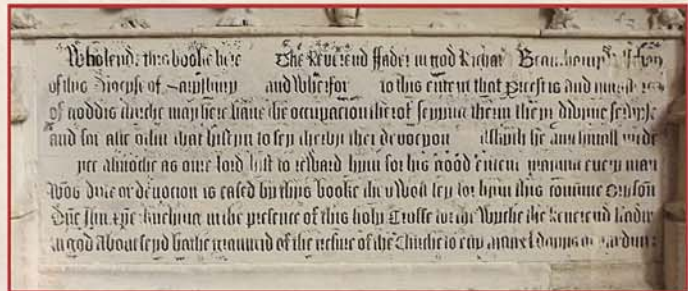 Who leyde this booke here The Reverend ffader in god Richard Beauchamp
of this Diocyse of Sarysbury and wherfor to this entent that Preestis and
of goddis chirche may here have the occupacion therof seyyng therin theyr divyne servyse
and for alle othir that lystyn to sey therby ther devocyon Askyth he any mede
yee asmoche as oure lord lyst to reward hym for his good entent praying every man
wos dute or devocion is eased by thys booke they woll sey for hym this comune Oryson
Dne Jhu xpe knelyng in the presence of this holy Crosse for the wyche the Reverend ffadir
in god aboveseyd hathe grauntid of the tresure of the Chirche to evy man xl dayys of pardun